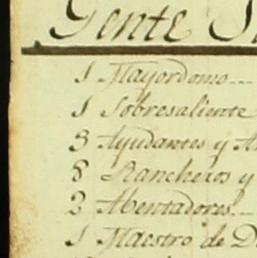 Gente
1 Mayordomo
1 Sobresaliente
8 Ayudantes y
8 Rancheros y
2 Abentadores
1 Maestro de